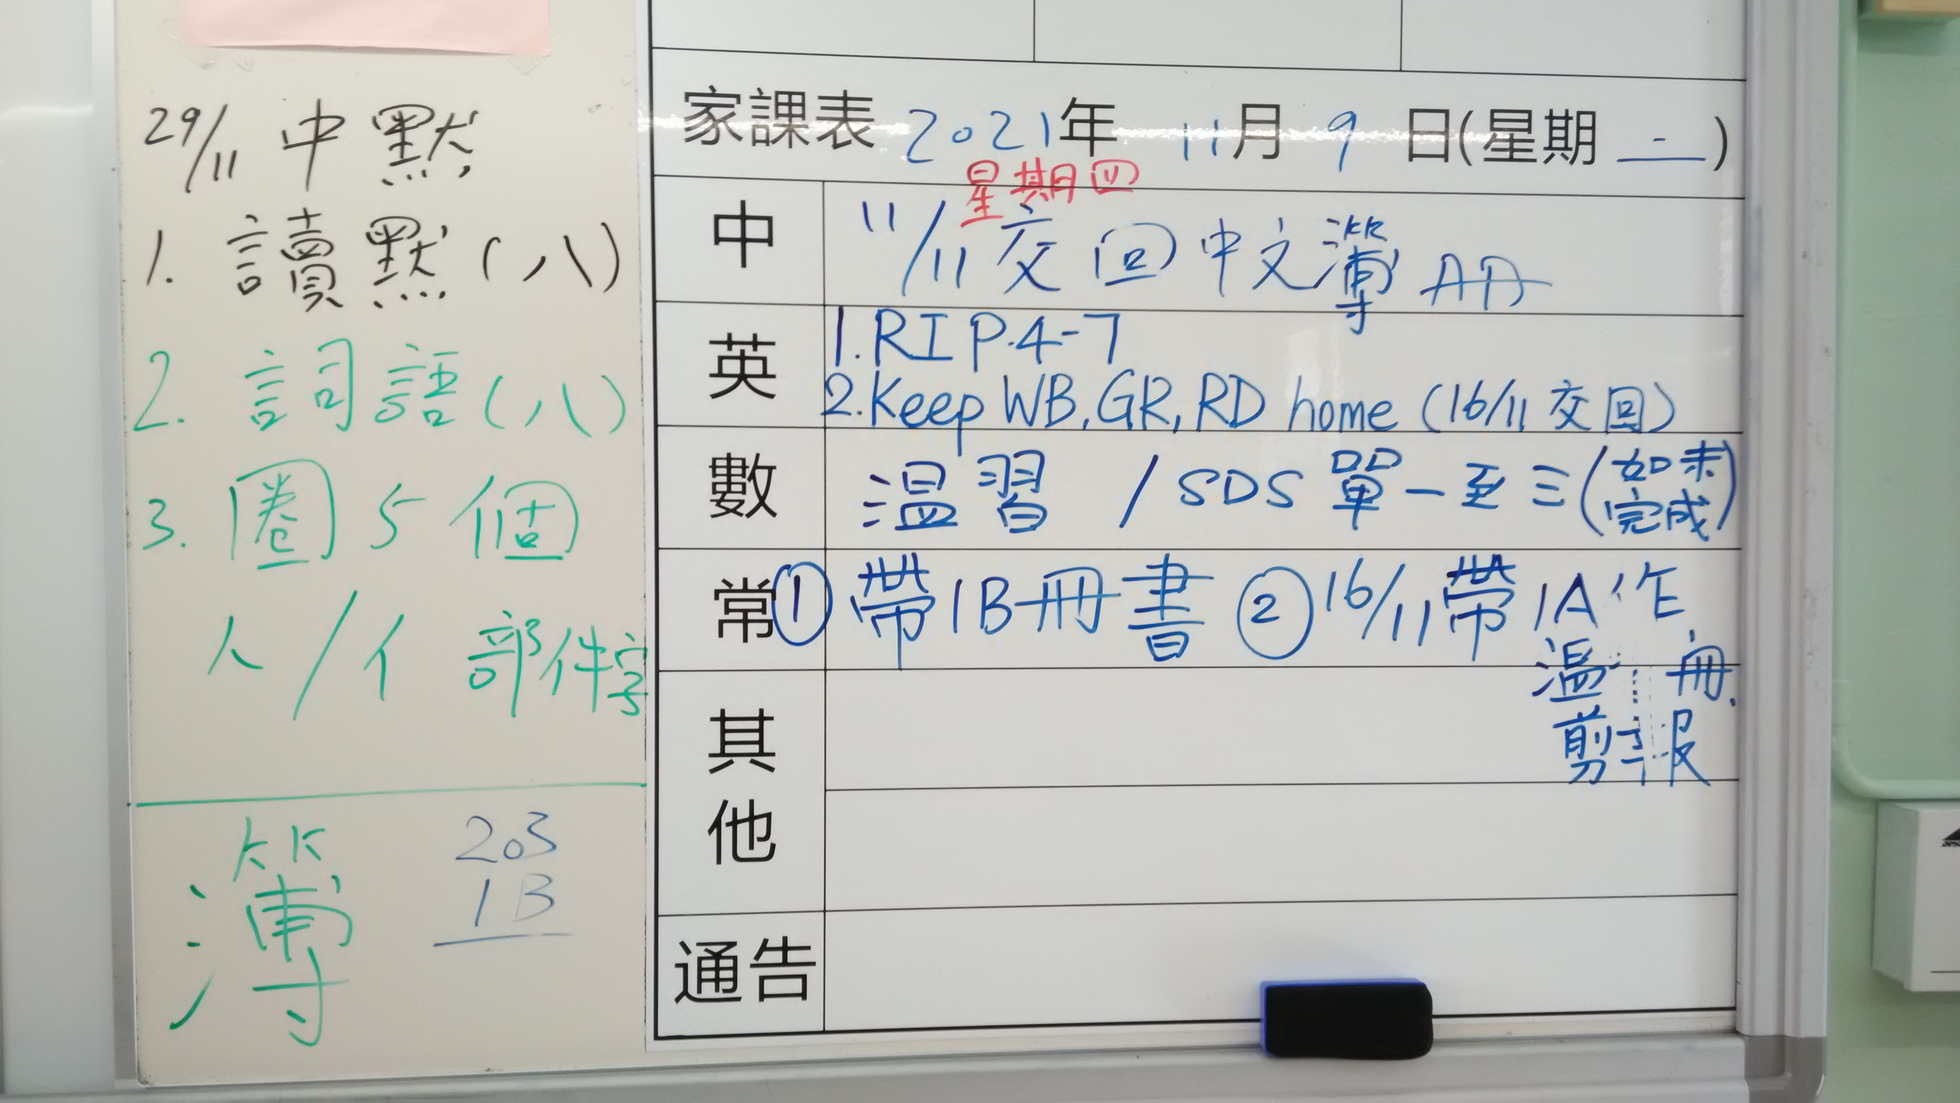 29/11 中默
1. 讀默(八)
2. 詞語(八)
3. 圈5個
人/亻部件字
簿
203
1B
家課表 2021年 11月 9日(星期二)
星期四
中 11/11 交回中文簿
英 1. RI P.4-7
2. Keep WB, GR, RD home (16/11 交回)
數 溫習 / SDS 單一至三(如未完成)
常 ① 帶1B冊書 ② 16/11帶1A作
溫 冊
剪報
其他
通告